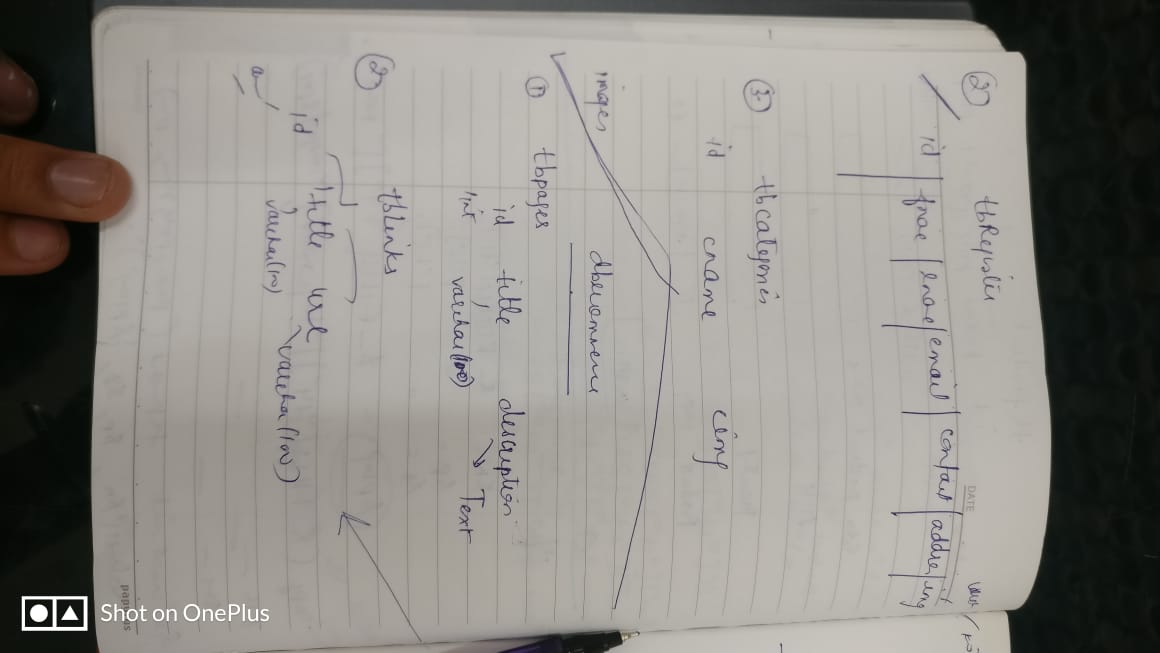 DATE
② tbRegister
id fname lname email contact address img
③ tbcategories
id cname cimg
images
dbecommerce
① tbpages
id title description
int varchar(100) Text
② tblinks
id title url
varchar(100) varchar(100)
Shot on OnePlus